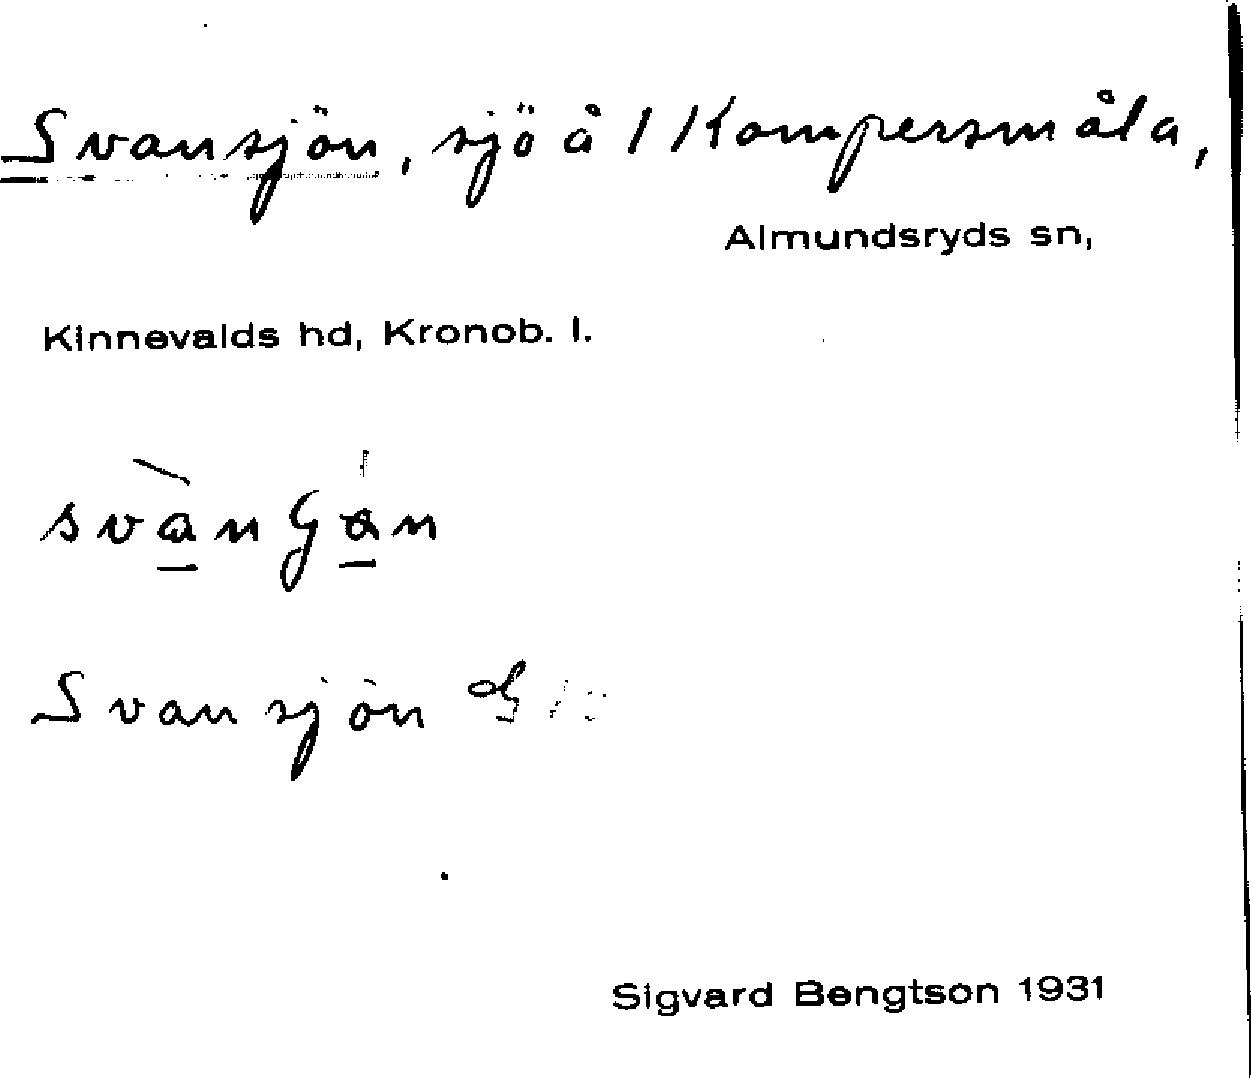 Svansjön, sjö å 1 Kompersmåla,
Almundsryds sn,
Kinnevalds hd, Kronob. l.
Svansjön
Sigvard Bengtson 1931